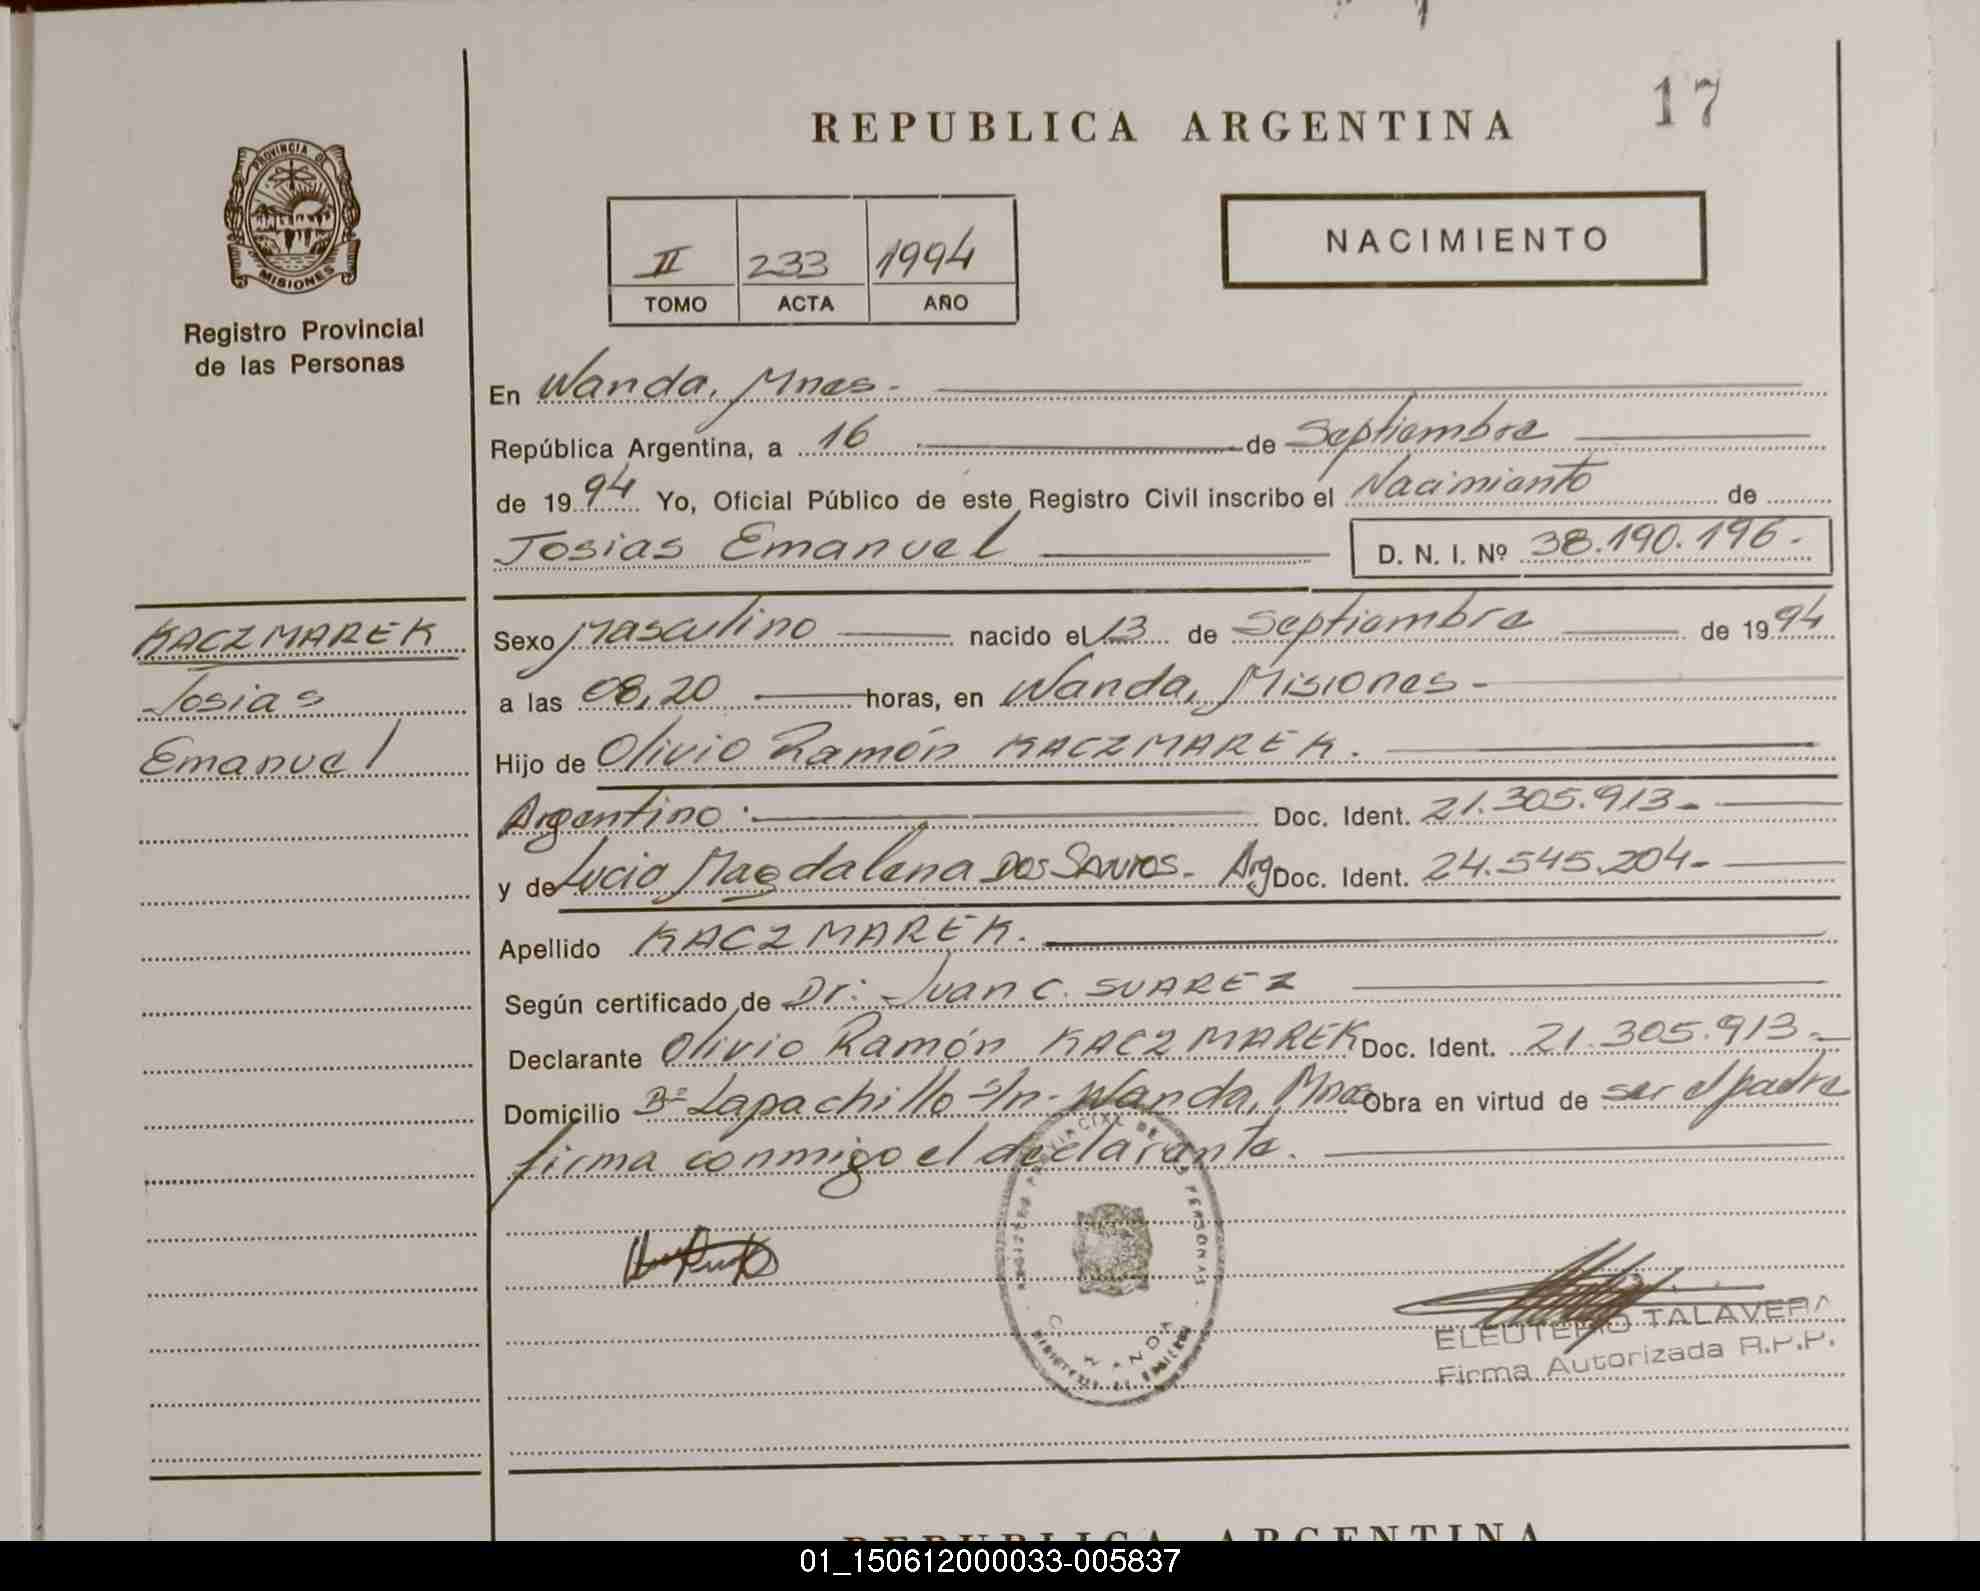 REPUBLICA ARGENTINA
17
PROVINCIA DE
MISIONES
Registro Provincial
de las Personas
II 233 1994
TOMO ACTA AÑO
NACIMIENTO
En Wanda, Mnes.-
República Argentina, a 16 de Septiembre
de 1994 Yo, Oficial Público de este Registro Civil inscribo el Nacimiento de
Josias Emanuel D. N. I. Nº 38.190.196.-
KACZMAREK
Josias
Emanuel
Sexo Masculino nacido el 13 de Septiembre de 1994
a las 08,20 horas, en Wanda, Misiones-
Hijo de Olivio Ramón KACZMAREK.
Argentino.- Doc. Ident. 21.305.913.-
y de Lucia Magdalena DOS SANTOS.- Arg Doc. Ident. 24.545.204.-
Apellido KACZMAREK.
Según certificado de Dr: Juan C. SUAREZ
Declarante Olivio Ramón KACZMAREK Doc. Ident. 21.305.913.-
Domicilio Bº Lapachillo s/n- Wanda, Mnes Obra en virtud de ser el padre
firma conmigo el declarante.
REGISTRO PROVINCIAL DE LAS PERSONAS
WANDA
ELEUTERIO TALAVERA
Firma Autorizada R.P.P.
REPUBLICA ARGENTINA
01_150612000033-005837